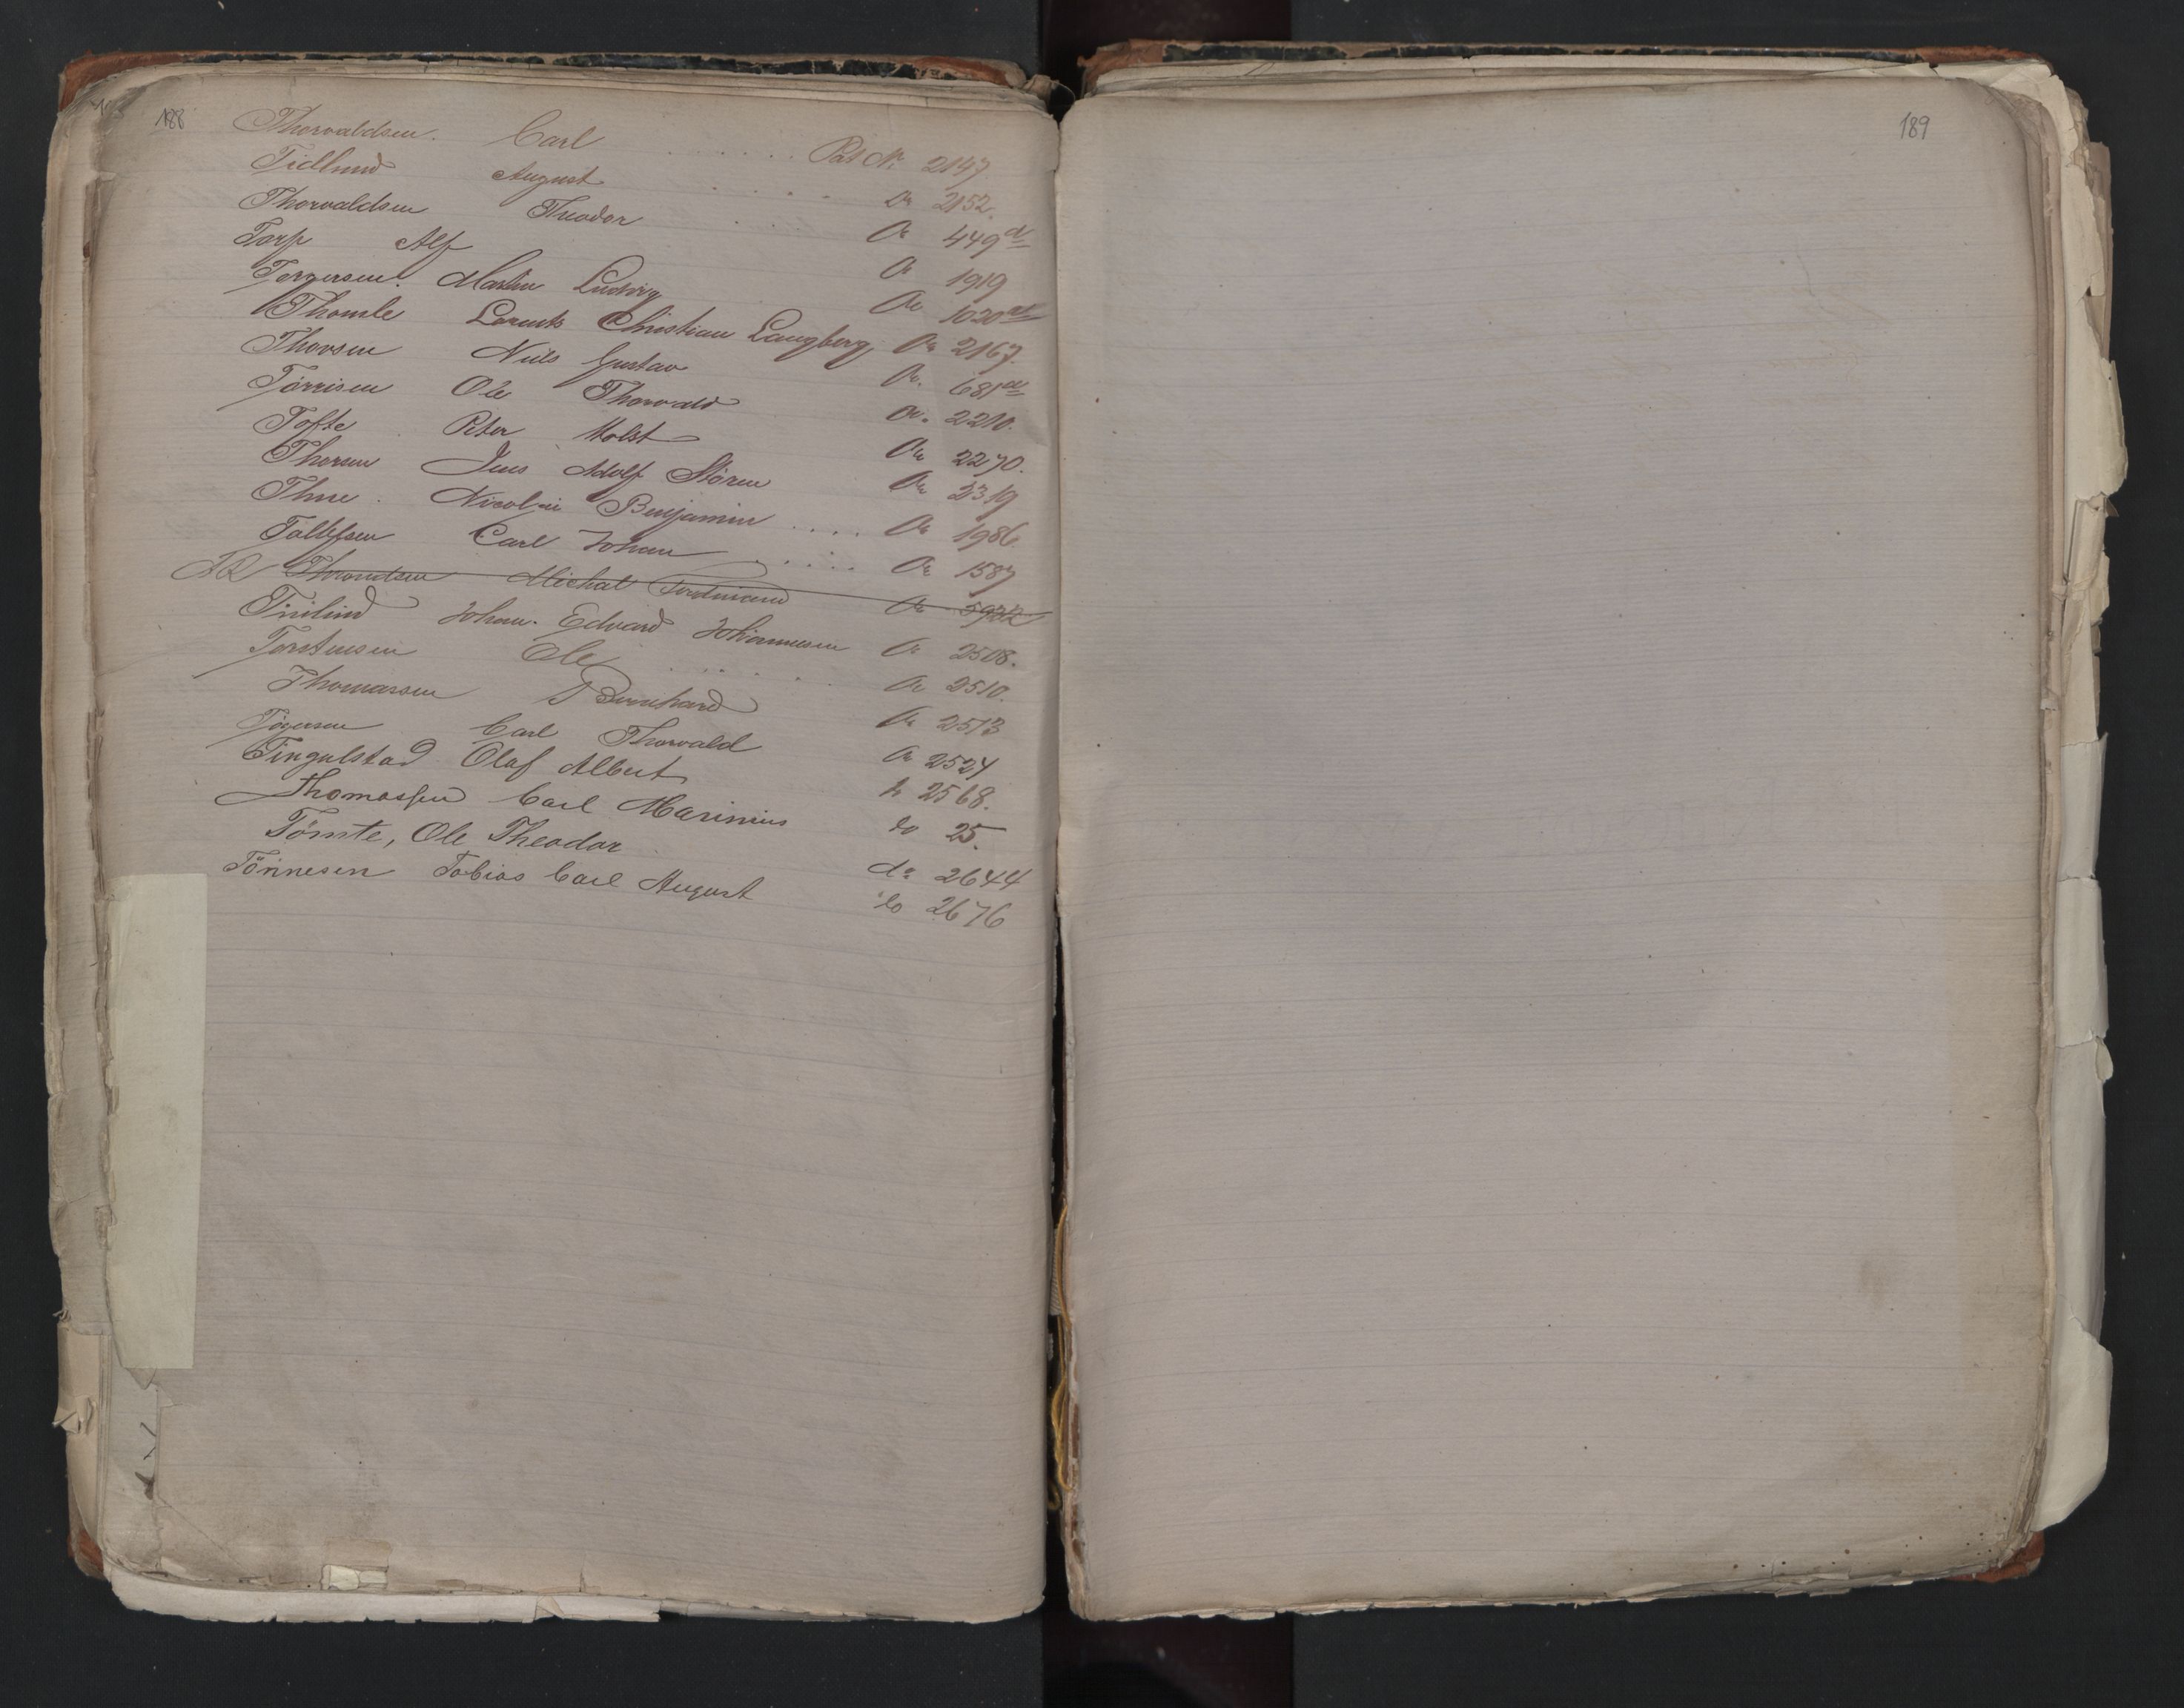 188
Thorvaldsen. Carl ....... Pat Nr 2147
Tidlund August .... Do 2152.
Thorvaldsen Theodor ... Do 449 a/
Torp Alf Do 1919
Torgersen. Martin Ludvig Do 1020 a/
Thomle Lorentz Christian Langberg, Do 2167.
Thorsen Niels Gustav Do. 681 a/
Tørrisen Ole Thorvald Do. 2210.
Tofte Peter Holst Do 2270.
Thorsen Jens Adolf Støren Do 2319
Thue. Nicolai Benjamin .... Do 1986.
Tollefsen Carl Johan ..... Do 1587
Throndsen Michal Ferdinand Do
Johan. Edvard Johannesen Do 2508.
Torstensen Ole ...... Do 2510.
Thomassen Bernhard Do 2513
Carl Thorvald Do 2524
Tingulstad Olaf Albert 2568.
Thomassen Carl Marinius do 25.
Tømte, Ole Theodor do 2644
Tönnesen Tobias Carl August do 2676
189